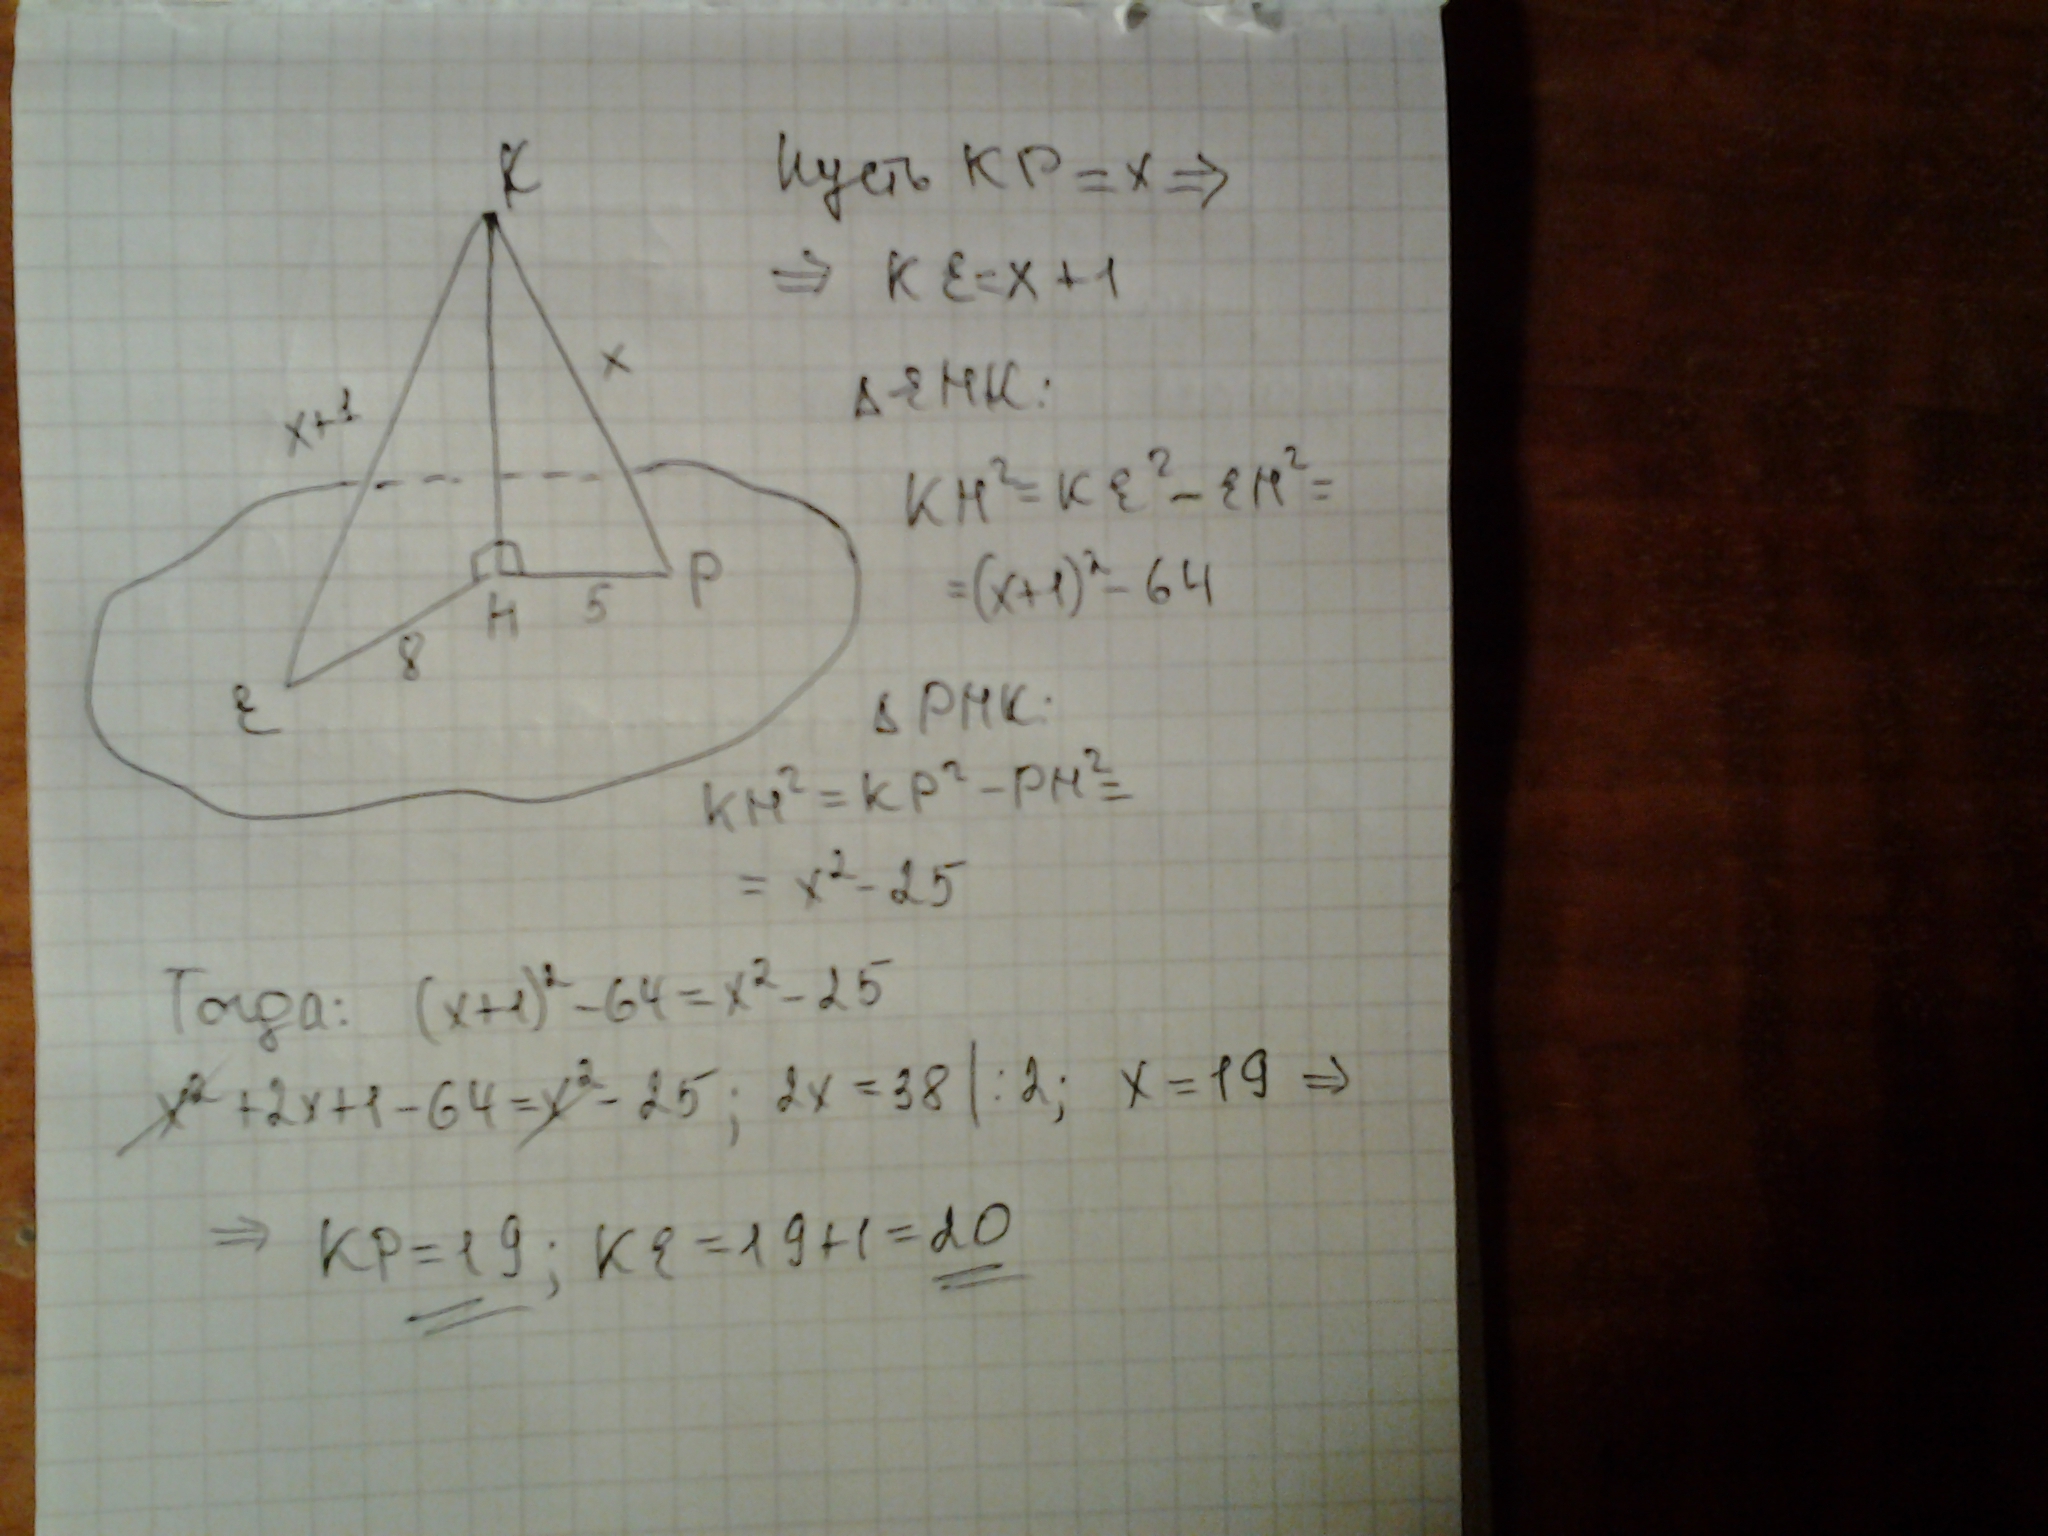 K
x+1
x
E
8
H
5
P
Пусть KP = x ⇒
⇒ KE = x + 1
Δ EHK:
KH² = KE² - EH² =
= (x+1)² - 64
Δ PHK:
KH² = KP² - PH² =
= x² - 25
Тогда: (x+1)² - 64 = x² - 25
x² + 2x + 1 - 64 = x² - 25; 2x = 38 | : 2; x = 19 ⇒
⇒ KP = 19; KE = 19 + 1 = 20